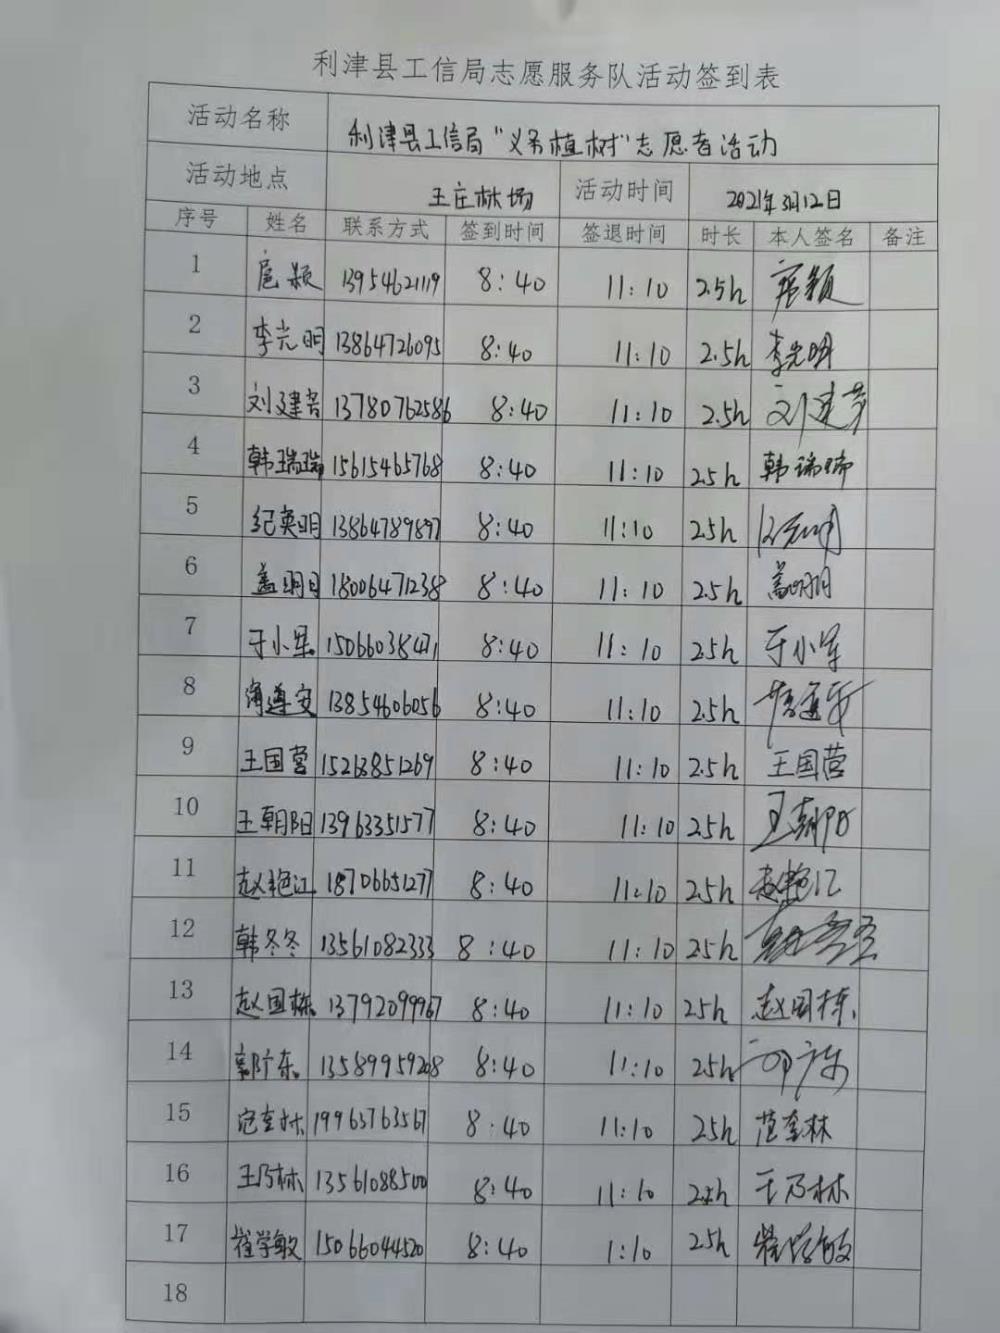 利津县工信局志愿服务队活动签到表
活动名称 利津县工信局“义务植树”志愿者活动
活动地点 王庄林场 活动时间 2021年3月12日
序号 姓名 联系方式 签到时间 签退时间 时长 本人签名 备注
1 扈颖 13954621119 8:40 11:10 2.5h 扈颖
2 李光明 13864726095 8:40 11:10 2.5h 李光明
3 刘建芳 13780762586 8:40 11:10 2.5h 刘建芳
4 韩瑞瑞 15615465768 8:40 11:10 2.5h 韩瑞瑞
5 纪英明 13864789897 8:40 11:10 2.5h
6 盖明 18006471238 8:40 11:10 2.5h 盖明
7 于小军 8:40 11:10 2.5h 于小军
8 遵安 13854606056 8:40 11:10 2.5h
9 王国营 8:40 11:10 2.5h 王国营
10 王朝阳 13963351577 8:40 11:10 2.5h 王朝阳
11 赵艳江 18706651277 8:40 11:10 2.5h 赵艳江
12 韩冬冬 13561082333 8:40 11:10 2.5h
13 赵国栋 13792099967 8:40 11:10 2.5h 赵国栋
14 郭广东 13589959208 8:40 11:10 2.5h
15 19963763567 8:40 11:10 2.5h 范奎林
16 王乃林 13561088500 8:40 11:10 2.5h 王乃林
17 崔学敏 15066044520 8:40 1:10 2.5h 崔学敏
18